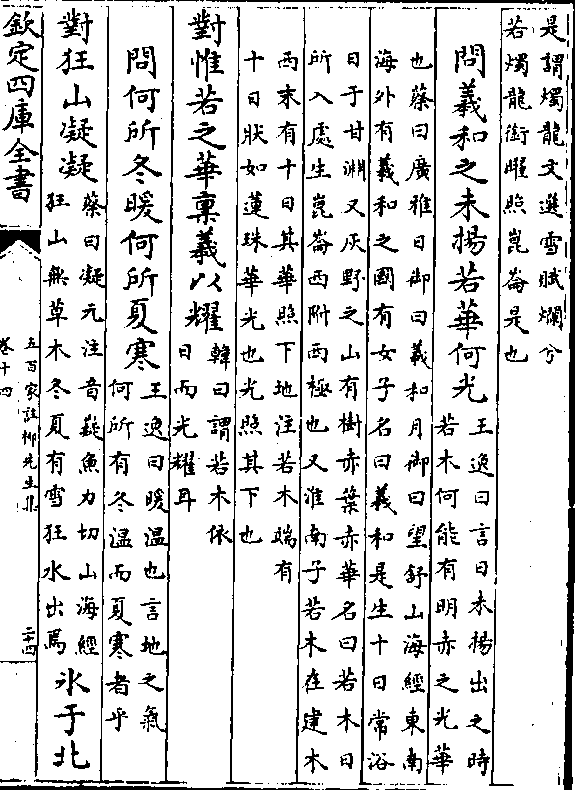 是謂燭龍文選雪賦爛兮
若燭龍銜曜照崑崙是也
問羲和之未揚若華何光
王逸曰言日未揚出之時
若木何能有明赤之光華
也蔡曰廣雅日御曰羲和月御曰望舒山海經東南
海外有羲和之國有女子名曰羲和是生十日常浴
日于甘淵又灰野之山有樹赤葉赤華名曰若木日
所入處生崑崙西附西極也又淮南子若木在建木
西末有十日其華照下地注若木端有
十日狀如蓮珠華光也光照其下也
對惟若之華稟羲以耀
韓曰謂若木依
日而光耀耳
問何所冬暖何所夏寒
王逸曰暖溫也言地之氣
何所有冬溫而夏寒者乎
對狂山凝凝
蔡曰凝元注音嶷魚力切山海經
狂山無草木冬夏有雪狂水出焉
氷于北
欽定四庫全書
五百家註柳先生集
卷十四
二十四